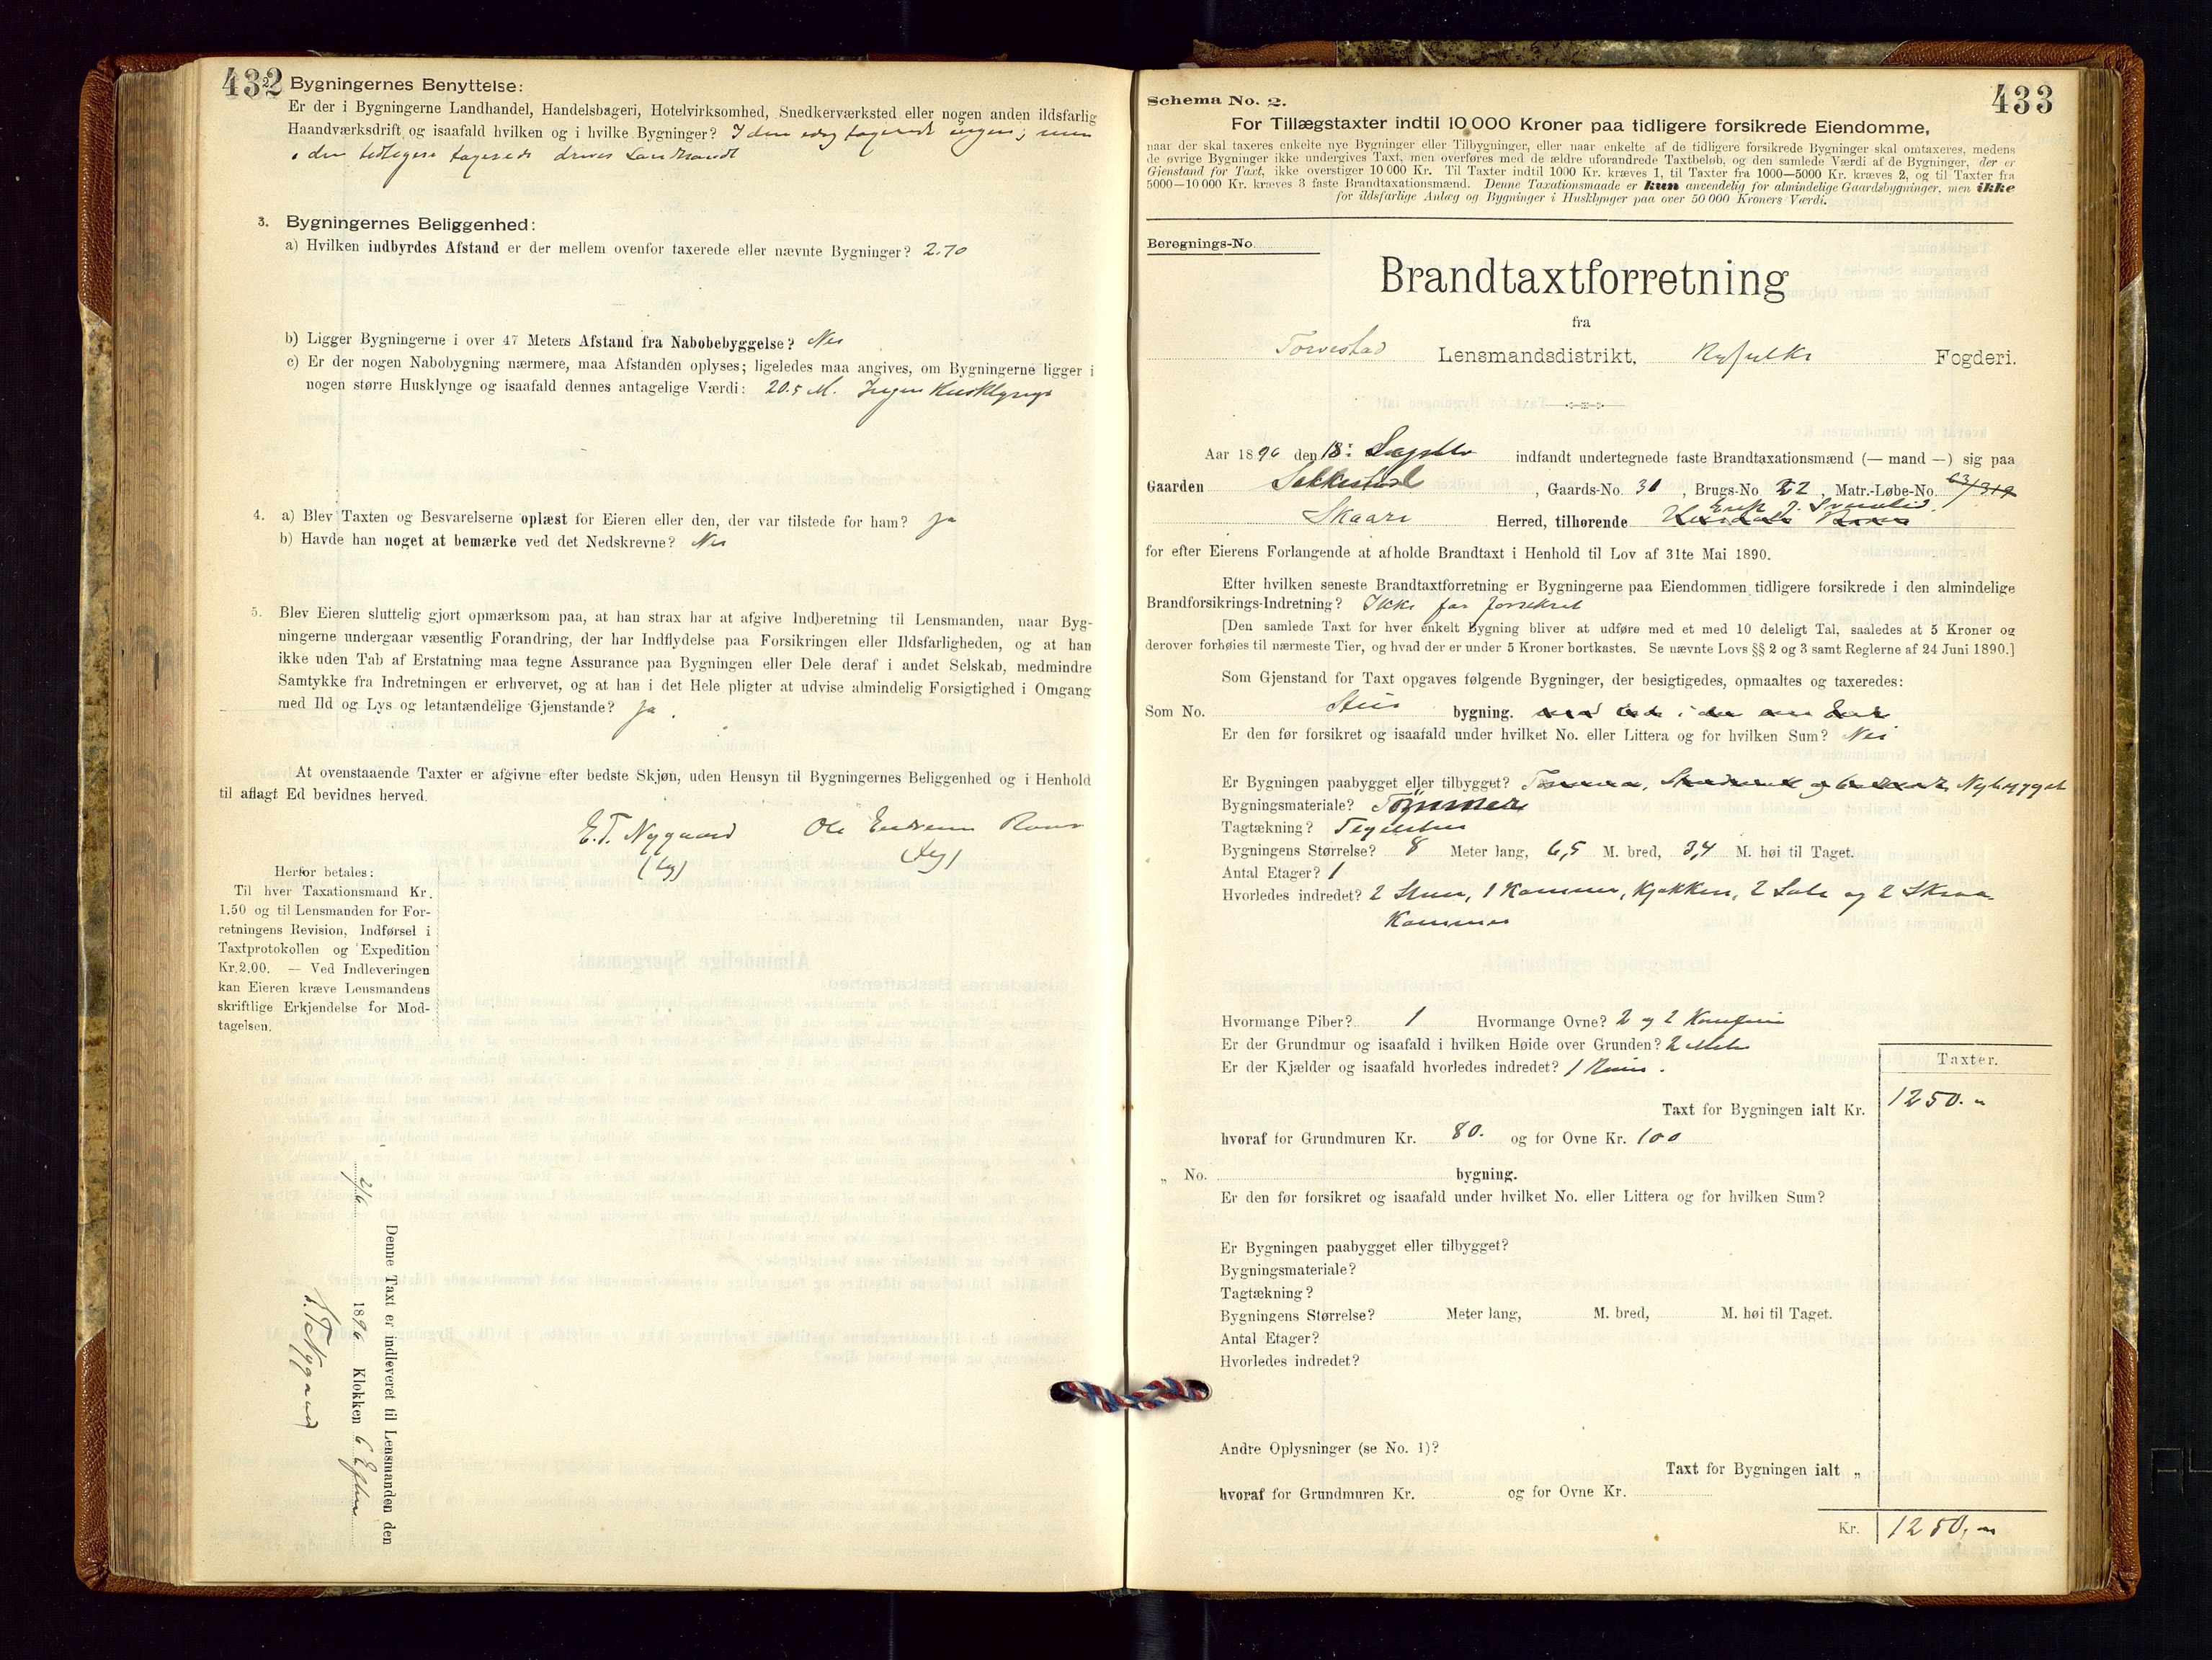 432
2. Bygningernes Benyttelse:
Er der i Bygningerne Landhandel, Handelsbageri, Hotelvirksomhed, Snedkerværksted eller nogen anden ildsfarlig
Haandværksdrift og isaafald hvilken og i hvilke Bygninger? I den idag taxerede ingen; men
i den tidligere taxerede drives Landhandl
3. Bygningernes Beliggenhed:
a) Hvilken indbyrdes Afstand er der mellem ovenfor taxerede eller nævnte Bygninger? 2.70
b) Ligger Bygningerne i over 47 Meters Afstand fra Nabobebyggelse? Nei
c) Er der nogen Nabobygning nærmere, maa Afstanden oplyses; ligeledes maa angives, om Bygningerne ligger i
nogen større Husklynge og isaafald dennes antagelige Værdi: 20.5 M. Ingen Husklynge
4. a) Blev Taxten og Besvarelserne oplæst for Eieren eller den, der var tilstede for ham? Ja
b) Havde han noget at bemærke ved det Nedskrevne? Nei
5. Blev Eieren sluttelig gjort opmærksom paa, at han strax har at afgive Indberetning til Lensmanden, naar Byg-
ningerne undergaar væsentlig Forandring, der har Indflydelse paa Forsikringen eller Ildsfarligheden, og at han
ikke uden Tab af Erstatning maa tegne Assurance paa Bygningen eller Dele deraf i andet Selskab, medmindre
Samtykke fra Indretningen er erhvervet, og at han i det Hele pligter at udvise almindelig Forsigtighed i Omgang
med Ild og Lys og letantændelige Gjenstande? Ja.
At ovenstaaende Taxter er afgivne efter bedste Skjøn, uden Hensyn til Bygningernes Beliggenhed og i Henhold
til aflagt Ed bevidnes herved.
E.T. Nygaard Ole Endresen
Herfor betales:
Til hver Taxationsmand Kr.
1.50 og til Lensmanden for For-
retningens Revision, Indførsel i
Taxtprotokollen og Expedition
Kr.2.00. — Ved Indleveringen
kan Eieren kræve Lensmandens
skriftlige Erkjendelse for Mod-
tagelsen.
Denne Taxt er indleveret til Lensmanden den
2/6 1896 Klokken 6 Efterm
Nygaard
433
Schema No. 2.
For Tillægstaxter indtil 10,000 Kroner paa tidligere forsikrede Eiendomme,
naar der skal taxeres enkelte nye Bygninger eller Tilbygninger, eller naar enkelte af de tidligere forsikrede Bygninger skal omtaxeres, medens
de øvrige Bygninger ikke undergives Taxt, men overføres med de ældre uforandrede Taxtbeløb, og den samlede Værdi af de Bygninger, der er
Gjenstand for Taxt, ikke overstiger 10 000 Kr. Til Taxter indtil 1000 Kr. kræves 1, til Taxter fra 1000—5000 Kr. kræves 2, og til Taxter fra
5000—10 000 Kr. kræves 3 faste Brandtaxationsmænd. Denne Taxationsmaade er kun anvendelig for almindelige Gaardsbygninger, men ikke
for ildsfarlige Anlæg og Bygninger i Husklynger paa over 50 000 Kroners Værdi.
Beregnings-No.
Brandtaxtforretning
fra
Torvestad Lensmandsdistrikt, Ryfylke Fogderi.
Aar 1896 den 18: indfandt undertegnede faste Brandtaxationsmænd (— mand —) sig paa
Gaarden Sakkestad, Gaards-No. 31, Brugs-No. 22, Matr.-Løbe-No. 63/319
Skaare Herred, tilhørende
for efter Eierens Forlangende at afholde Brandtaxt i Henhold til Lov af 31te Mai 1890.
Efter hvilken seneste Brandtaxtforretning er Bygningerne paa Eiendommen tidligere forsikrede i den almindelige
Brandforsikrings-Indretning? Ikke før forsikret
[Den samlede Taxt for hver enkelt Bygning bliver at udføre med et med 10 deleligt Tal, saaledes at 5 Kroner og
derover forhøies til nærmeste Tier, og hvad der er under 5 Kroner bortkastes. Se nævnte Lovs §§ 2 og 3 samt Reglerne af 24 Juni 1890.]
Som Gjenstand for Taxt opgaves følgende Bygninger, der besigtigedes, opmaaltes og taxeredes:
Som No. Stue bygning.
Er den før forsikret og isaafald under hvilket No. eller Littera og for hvilken Sum? Nei
Er Bygningen paabygget eller tilbygget? Nybygget
Bygningsmateriale? Tømmer
Tagtækning? Teglsten
Bygningens Størrelse? 8 Meter lang, 6,5 M. bred, 3,4 M. høi til Taget.
Antal Etager? 1
Hvorledes indredet? 2 Stuer, 1 Kammer, Kjøkken, 2 Sale og 2 Skraa-
Kammer
Hvormange Piber? 1 Hvormange Ovne? 2 og 2 Komfurer
Er der Grundmur og isaafald i hvilken Høide over Grunden? 2 Meter
Er der Kjælder og isaafald hvorledes indredet? 1 Rum.
Taxter.
Taxt for Bygningen ialt Kr. 1250.-
hvoraf for Grundmuren Kr. 80. og for Ovne Kr. 100
„ No. bygning.
Er den før forsikret og isaafald under hvilket No. eller Littera og for hvilken Sum?
Er Bygningen paabygget eller tilbygget?
Bygningsmateriale?
Tagtækning?
Bygningens Størrelse? Meter lang, M. bred, M. høi til Taget.
Antal Etager?
Hvorledes indredet?
Andre Oplysninger (se No. 1)?
Taxt for Bygningen ialt „
hvoraf for Grundmuren Kr. og for Ovne Kr.
Kr. 1250.-